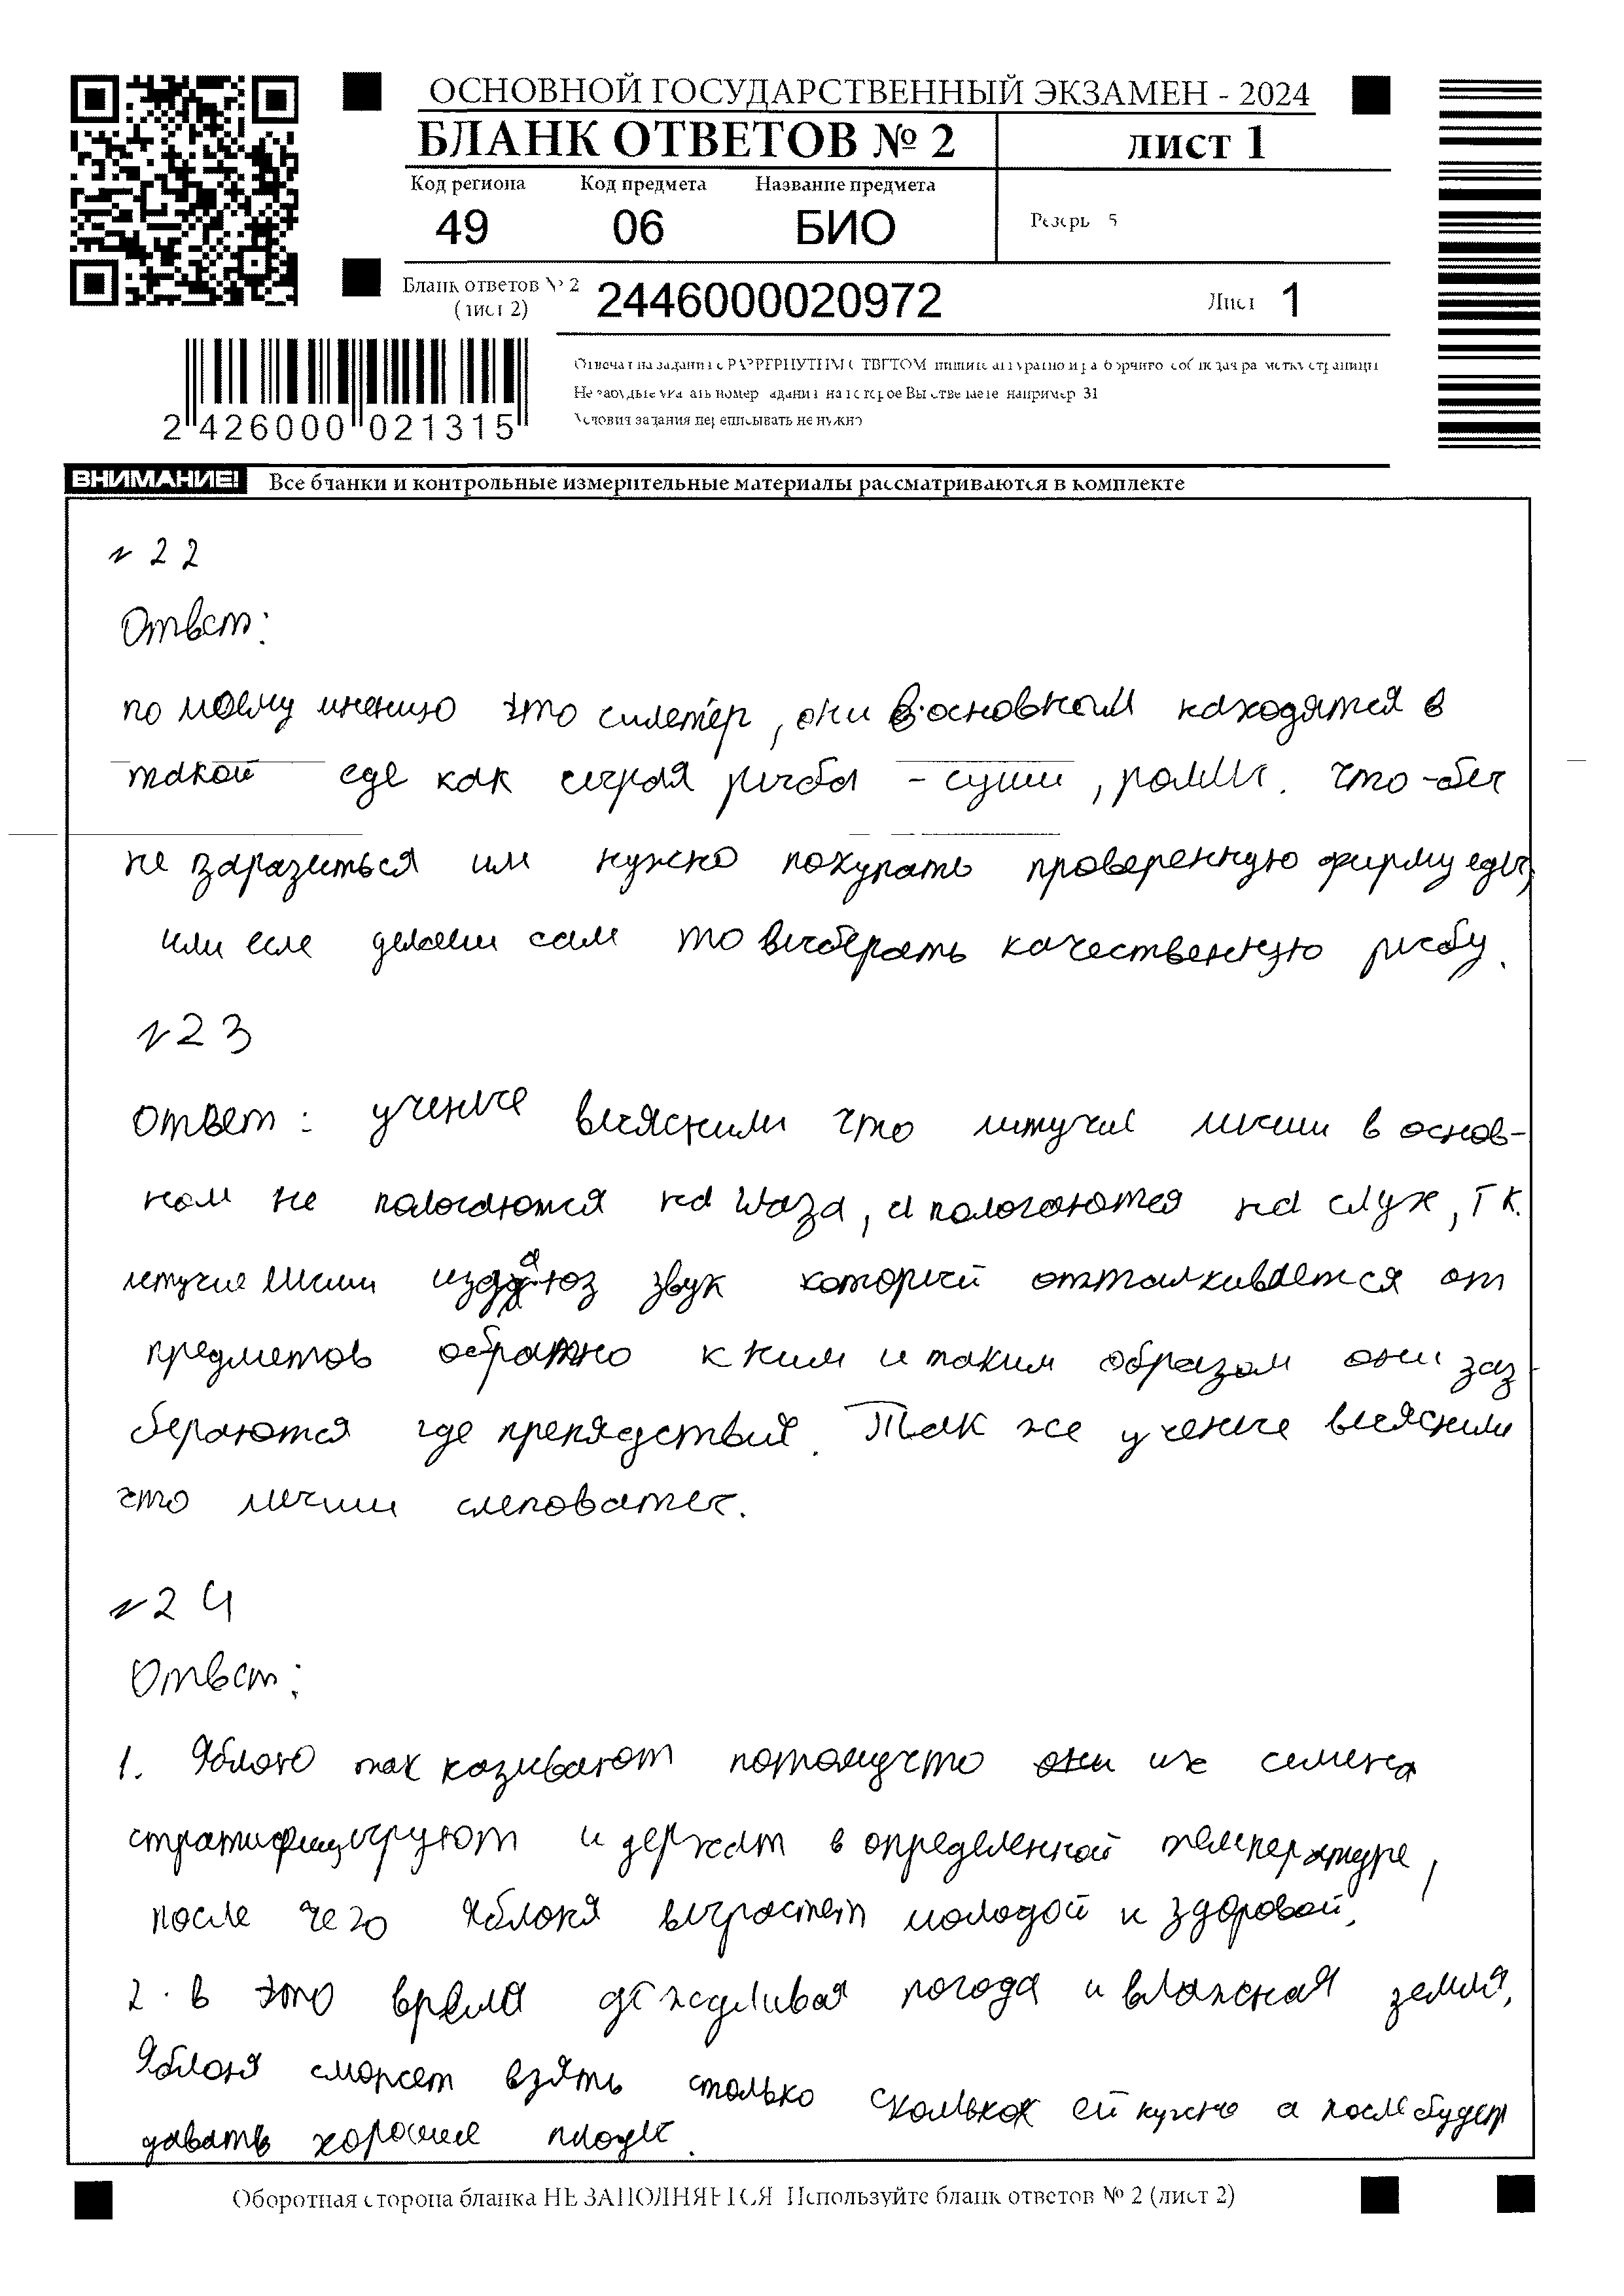 ОСНОВНОЙ ГОСУДАРСТВЕННЫЙ ЭКЗАМЕН - 2024
БЛАНК ОТВЕТОВ № 2
лист 1
Код региона Код предмета Название предмета
49 06 БИО
Резерв 5
Бланк ответов № 2
(лист 2)
2446000020972
Лист 1
2 426000 021315
Отвечая на задания с РАЗВЕРНУТЫМ ОТВЕТОМ, пишите аккуратно и разборчиво, соблюдая разметку страницы
Не забудьте указать номер задания, на которое Вы отвечаете, например 31
Условия задания переписывать не нужно
ВНИМАНИЕ! Все бланки и контрольные измерительные материалы рассматриваются в комплекте
№ 22
Ответ:
по моему мнению это силетёр, они в основном находятся в
такой еде как сырая рыба - суши, роллы. Что-бы
не заразиться им нужно покупать проверенную фирму еды,
или если делаеш сам то выберать качественную рыбу.
№23
Ответ: ученые выяснили что летучие мыши в основ-
ном не пологаются на глаза, а пологаются на слух, т к.
летучие мыши издаюз звук который отталкивается от
предметов обратно к ним и таким образом они заз
бераются где препядствия. Так же ученые выяснили
что мыши слеповатые.
№24
Ответ:
1. Яблоню так называют потомучто их семена
стратифицыруют и держат в определенной температуре,
после чего яблоня вырастет молодой и здоровой,
2. в это время дождливая погода и влажная земля,
Яблоня сможет взять столько сколько ей нужно а после будет
давать хорошие плоды.
Оборотная сторона бланка НЕ ЗАПОЛНЯЕТСЯ. Используйте бланк ответов № 2 (лист 2)